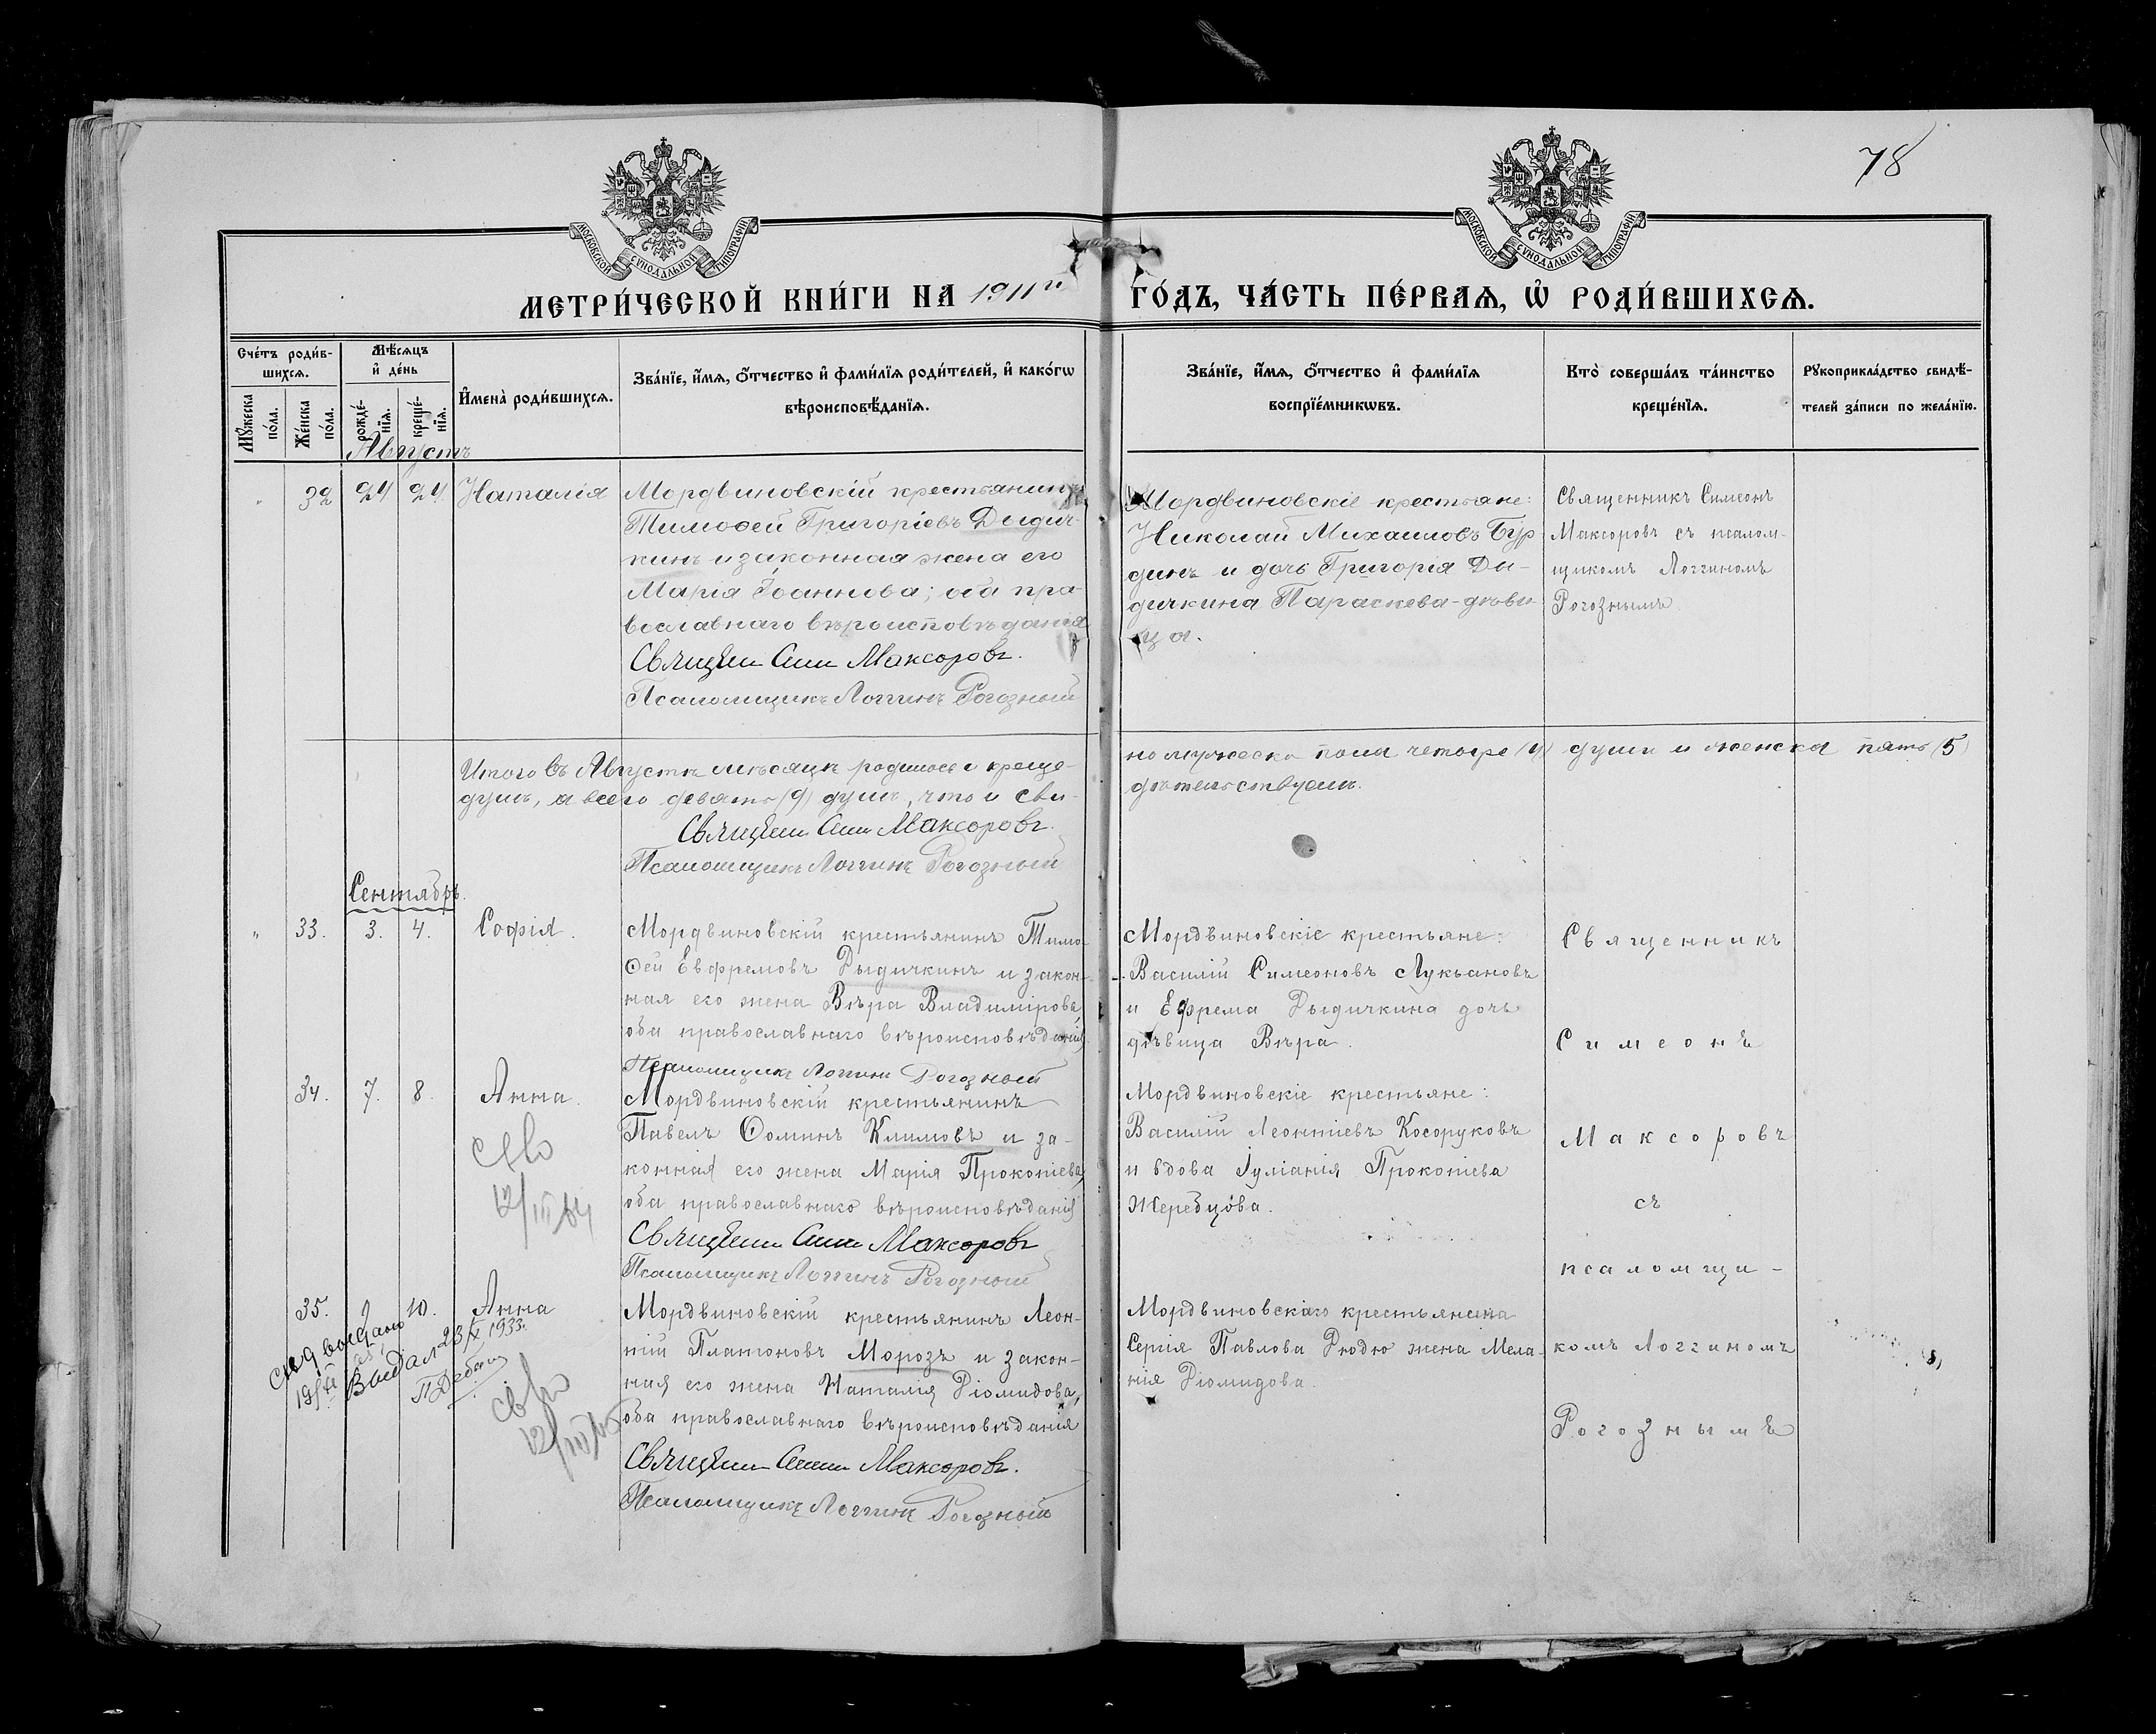 78
МОСКОВСКОЙ СУНОДАЛЬНОЙ ТИПОГРАФІИ
МОСКОВСКОЙ СУНОДАЛЬНОЙ ТИПОГРАФІИ
МЕТРИ́ЧЕСКОЙ КНИ́ГИ НА 1911й ГО́ДЪ, ЧА́СТЬ ПЕ́РВАѦ, Ѡ҆ РОДИ́ВШИХСѦ.
Сче́тъ роди́в-
шихсѧ.
Мѹ́жеска по́ла.
Же́нска по́ла.
Мѣ́сѧцъ
и҆ де́нь
рожде́-
нїѧ.
креще́-
нїѧ.
И҆мена̀ роди́вшихсѧ.
Зва́нїе, и҆́мѧ, ѻ҆́тчество и҆ фами́лїѧ роди́телей, и҆ како́гѡ
вѣроисповѣ́данїѧ.
Зва́нїе, и҆́мѧ, ѻ҆́тчество и҆ фами́лїѧ
воспрїе́мникѡвъ.
Кто̀ соверша́лъ та́инство
креще́нїѧ.
Рѹкоприкла́дство свидѣ́-
телей за́писи по жела́нїю.
Августъ
" 32 24 24 Наталія
Мордвиновскій крестьянинъ
Тимоѳей Григоріевъ Дыдич-
кинъ и законная жена его
Марія Іоаннова; оба пра-
вославнаго вѣроисповѣданія
Священ Сим Максоровъ.
Псаломщикъ Логгинъ Рогозный
Мордвиновскіе крестьяне:
Николай Михаиловъ Бур-
динъ и дочь Григорія Ды-
дичкина Параскева-дѣви-
ца.
Священникъ Симеонъ
Максоровъ съ псалом-
щикомъ Логгиномъ
Рогознымъ
Итого въ Августѣ мѣсяцѣ родилось и креще-но мужеска пола четыре (4) души и женска пять (5)
душъ, а всего девять (9) душъ, что и сви-дѣтельствуемъ.
Священ Сим Максоровъ.
Псаломщикъ Логгинъ Рогозный
Сентябрь.
" 33. 3. 4. Софія.
Мордвиновскій крестьянинъ Тимо-
ѳей Евфремовъ Дыдичкинъ и закон-
ная его жена Вѣра Владимірова,
оба православнаго вѣроисповѣданія
Псаломщикъ Логгинъ Рогозный
Мордвиновскіе крестьяне:
Василій Симеоновъ Лукьановъ
и Ефрема Дыдичкина дочь
дѣвица Вѣра.
Священникъ
Симеонъ
34. 7. 8. Анна.
12/III 64
Мордвиновскій крестьянинъ
Павелъ Ѳоминъ Климовъ и за-
конная его жена Марія Прокопіева,
оба православнаго вѣроисповѣданія
Священ Сим Максоровъ
Псаломщикъ Логгинъ Рогозный
Мордвиновскіе крестьяне:
Василій Леонтіевъ Косоруковъ
и вдова Іуліанія Прокопіева
Жеребцова.
Максоровъ
съ
псаломщи-
35. 9 10. Анна
Выдал 23/X 1933.
Мордвиновскій крестьянинъ Леон-
тій Платоновъ Морозъ и закон-
ная его жена Наталія Діомидова,
оба православнаго вѣроисповѣданія
Священ Сим Максоровъ.
Псаломщикъ Логгинъ Рогозный
Мордвиновскаго крестьянина
Сергія Павлова Дюдю жена Мела-
нія Діомидова.
комъ Логгиномъ
Рогознымъ